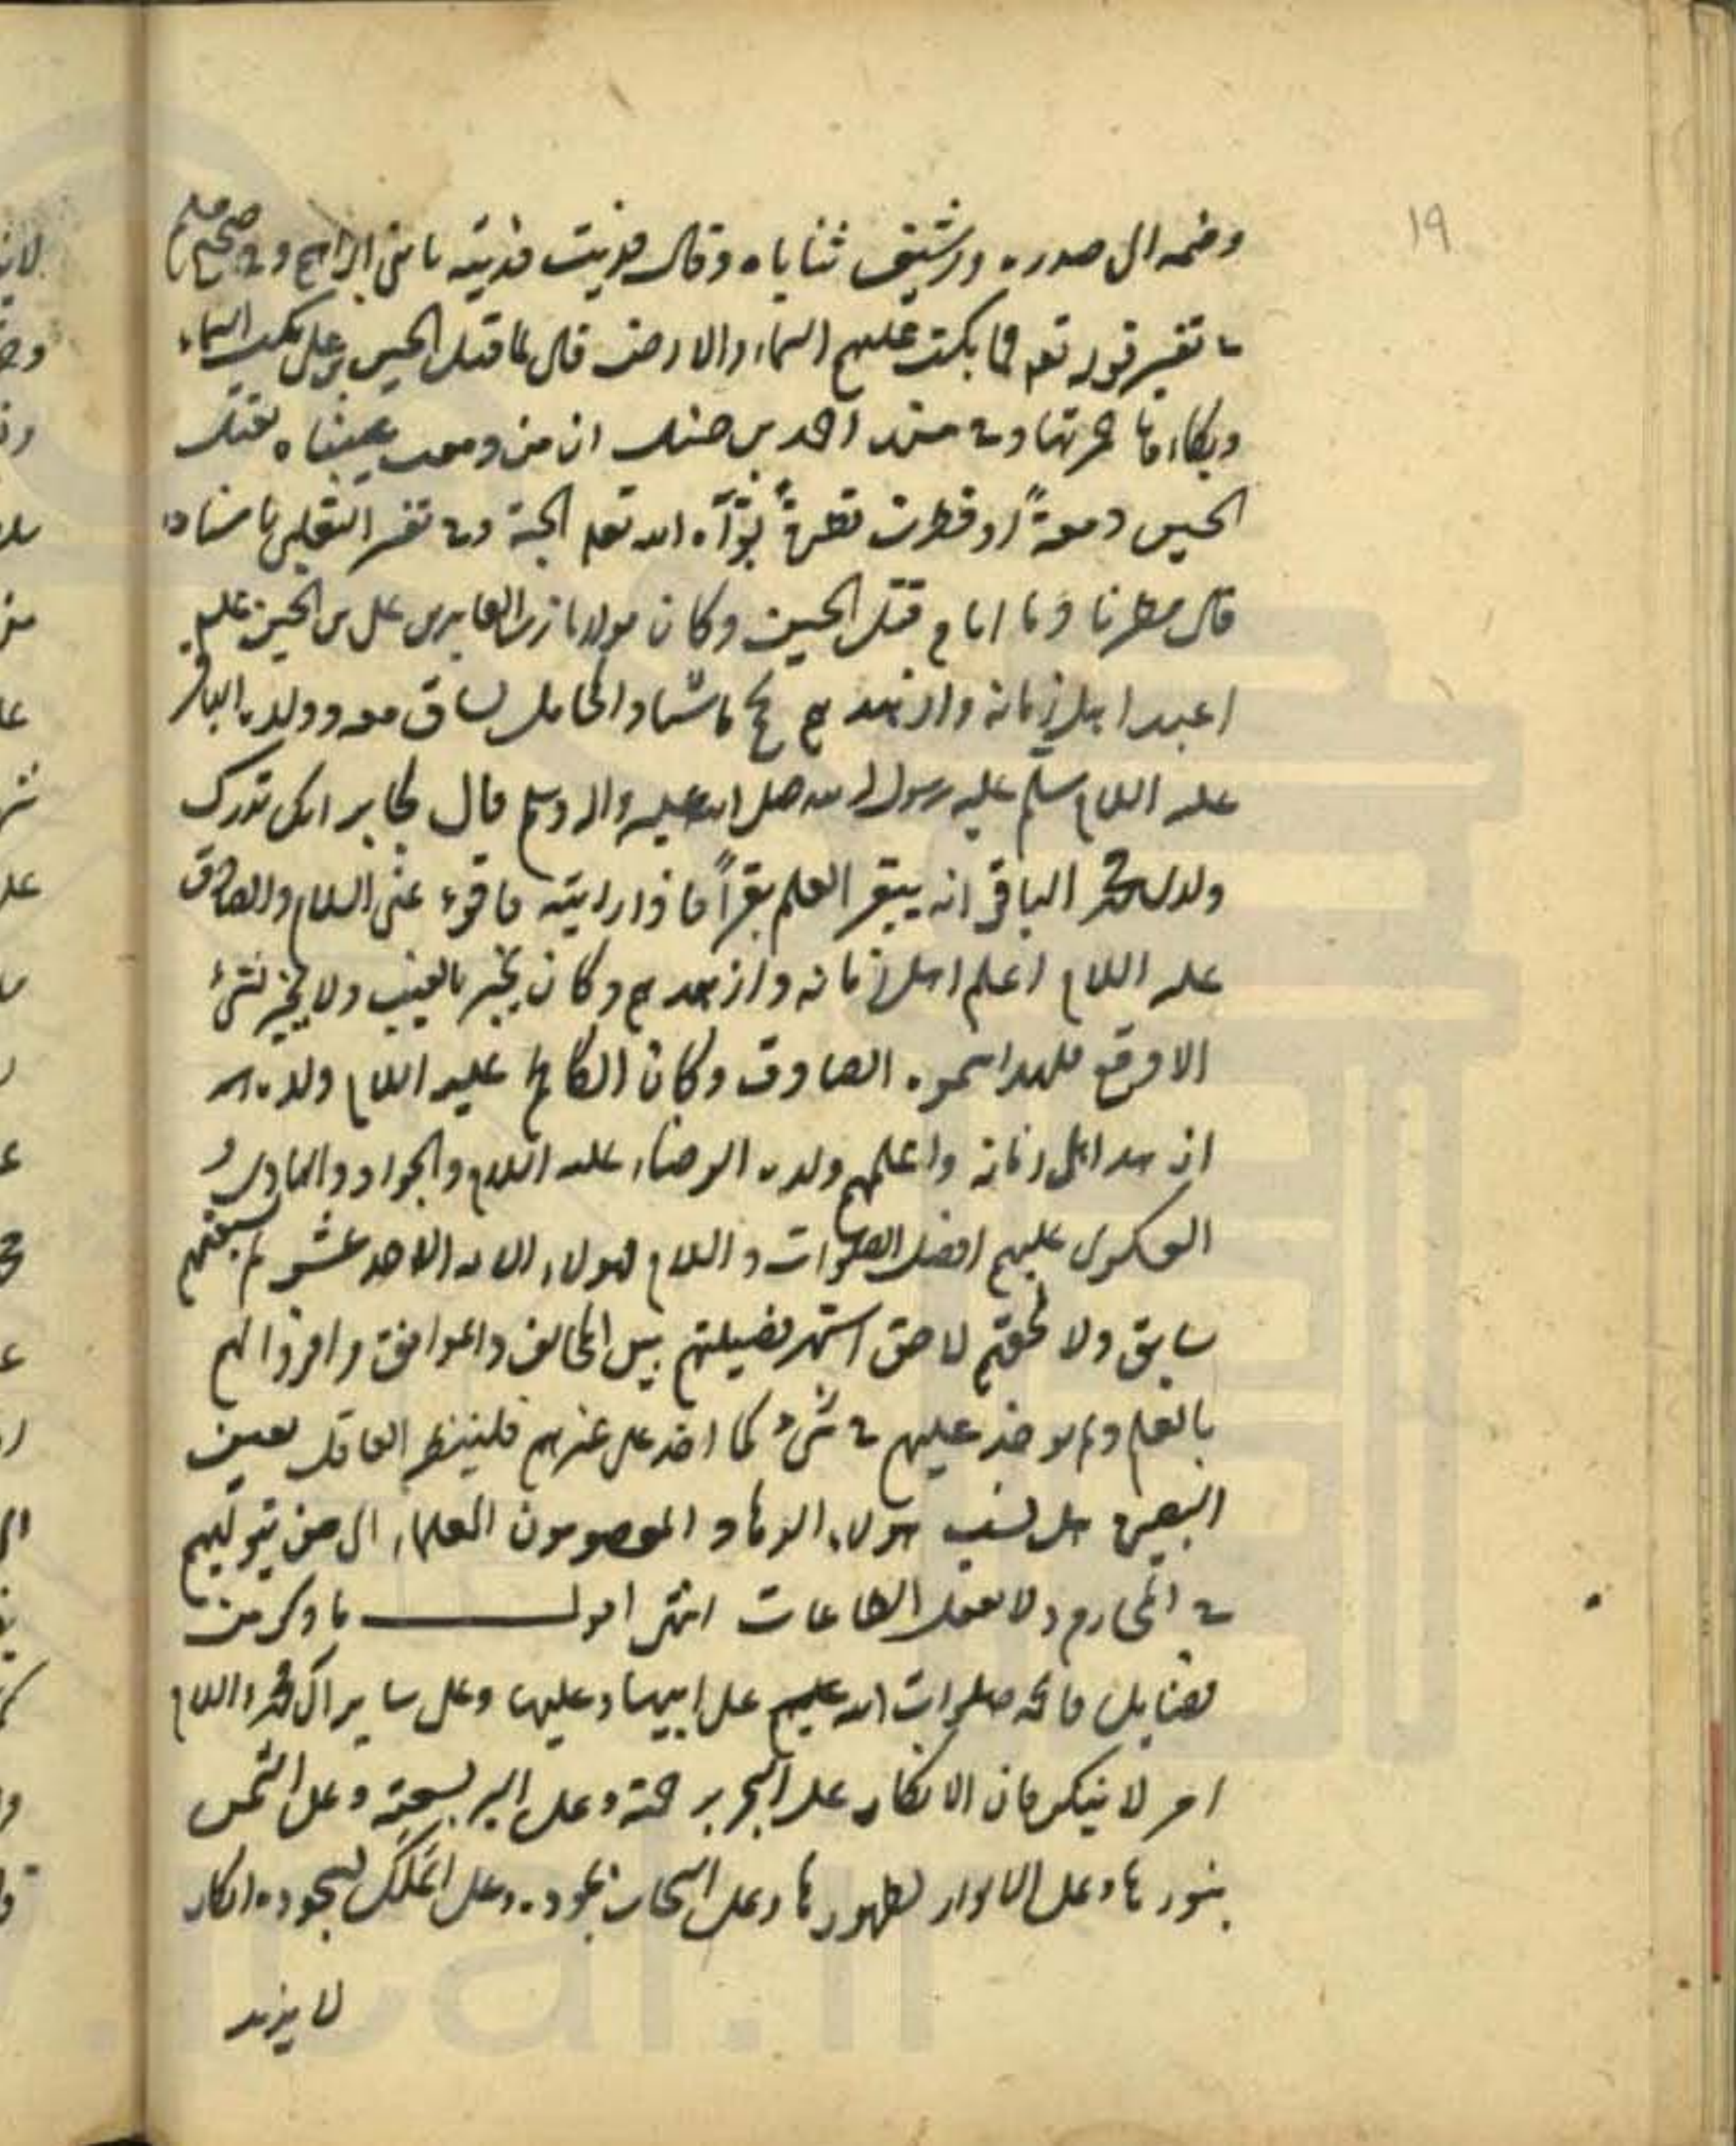 19
وضمه الى صدره ورشيف ثناياه وقال فديت فديته بابني ابراهيم وفي صحيح مسلم
في تفسير قوله تعم فما بكت عليهم السماء والارض قال لما قتل الحسين بن على بكت السماء
وبكاءها حمرتها وفي مسند احمد بن حنبل ان من دمعت عيناه لقتل
الحسين دمعةً او قطرت قطرةً بوّأه الله تعم الجنة وفي تفسير الثعلبى باسناده
قال مطرنا دما ايام قتل الحسين وكان مولانا زين العابدين على بن الحسين عليه
اعبد اهل زمانه وازهدهم يحج ماشيا والمحامل تساق معه وولده الباقر
عليه السلام سلم عليه رسول الله صلى الله عليه واله وسلم قال لجابر انك تدرك
ولدى محمد الباقر انه يبقر العلم بقراً فاذا رايته فاقرء عنى السلام والصادق
عليه السلام اعلم اهل زمانه وازهدهم وكان يخبر بالغيب ولا يخبر بشىء
الا وقع فلهذا سموه الصادق وكان الكاظم عليه السلام ولده
ازهد اهل زمانه واعلمهم ولده الرضاء عليه السلام والجواد والهادى و
العسكرى عليهم افضل الصلوات والسلام فهولاء الائمه الاحد عشر لم يسبقهم
سابق ولا لحقهم لاحق اشتهر فضيلتهم بين المخالف والموافق واقروا لهم
بالعلم ولم يوخذ عليهم في شىء كما اخذ على غيرهم فلينظر العاقل بعين
البصيرة هل نسب هولاء الزهاد المعصومون العلماء الى من يتوليهم
في المحارم ولا يفعل الطاعات انتهى اقول ما ذكر من
فضايل فاطمه صلوات الله عليهم على ابيها وعليها وعلى ساير ال محمد والسلام
امر لا ينكر فان الانكار على البحر برحمته وعلى البر بسعته وعلى الشمس
بنورها وعلى الانوار بظهورها وعلى السحاب بجوده وعلى الملك بسجوده انكار
لا يزيد